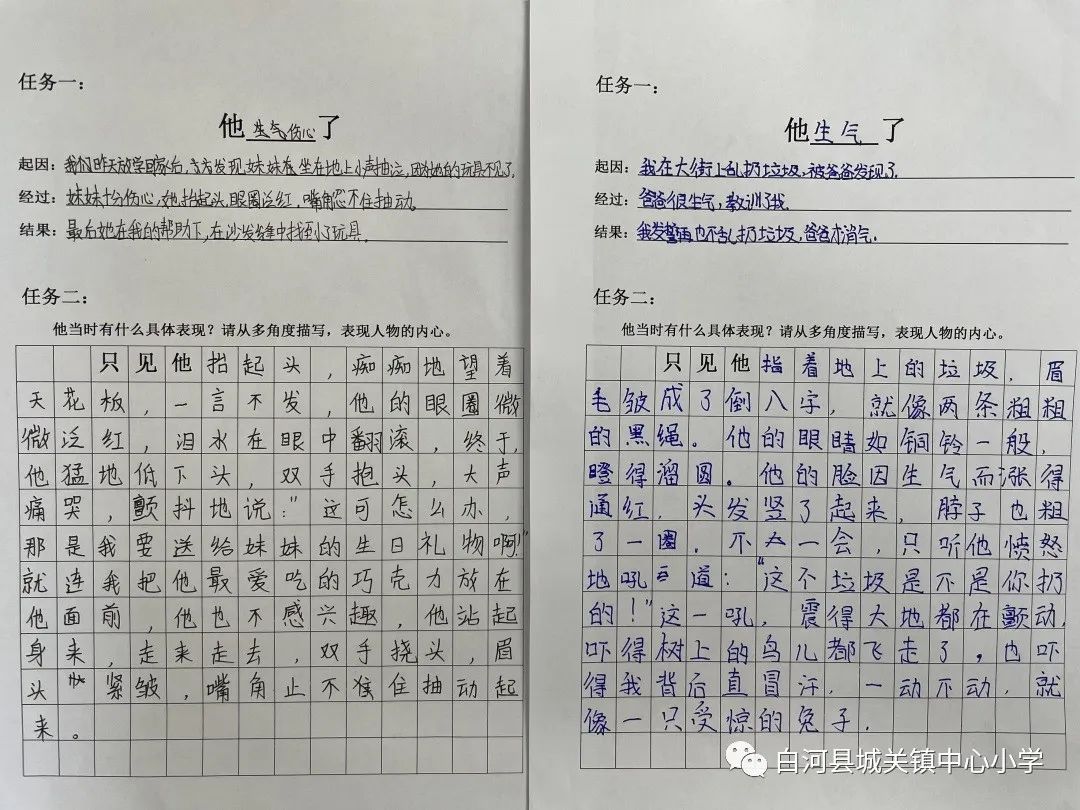 任务一：
他生气伤心了
起因：我们昨天放学回家后，方方发现妹妹在坐在地上小声抽泣，因为她的玩具不见了。
经过：妹妹十分伤心，她抬起头，眼圈泛红，嘴角忍不住抽动。
结果：最后她在我的帮助下，在沙发缝中找到了玩具。
任务二：
他当时有什么具体表现？请从多角度描写，表现人物的内心。
只见他抬起头，痴痴地望着
天花板，一言不发，他的眼圈微
微泛红，泪水在眼中翻滚，终于，
他猛地低下头，双手抱头，大声
痛哭，颤抖地说：“这可怎么办，
那是我要送给妹妹的生日礼物啊！”
就连我把他最爱吃的巧克力放在
他面前，他也不感兴趣，他站起
身来，走来走去，双手挠头，眉
头紧皱，嘴角止不住抽动起
来。
任务一：
他生气了
起因：我在大街上乱扔垃圾，被爸爸发现了。
经过：爸爸很生气，教训了我。
结果：我发誓再也不乱扔垃圾，爸爸才消气。
任务二：
他当时有什么具体表现？请从多角度描写，表现人物的内心。
只见他指着地上的垃圾，眉
毛皱成了倒八字，就像两条粗粗
的黑绳。他的眼睛如铜铃一般，
瞪得溜圆。他的脸因生气而涨得
通红，头发竖了起来，脖子也粗
了一圈，不一会，只听他愤怒
地吼道：“这不垃圾是不是你扔
的！”这一吼，震得大地都在颤动，
吓得树上的鸟儿都飞走了，也吓
得我背后直冒汗，一动不动，就
像一只受惊的兔子。
白河县城关镇中心小学